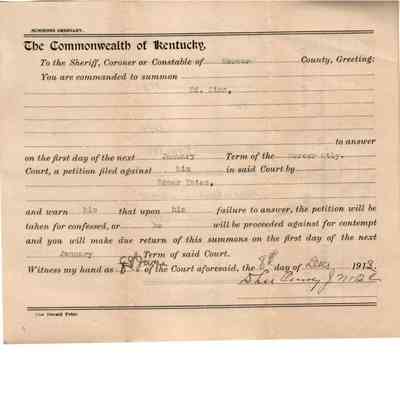 SUMMONS ORDINARY.
The Commonwealth of Kentucky,
To the Sheriff, Coroner or Constable of Mercer County, Greeting:
You are commanded to summon
Ed. Sims,
to answer
on the first day of the next January Term of the Mercer Qtly.
Court, a petition filed against him in said Court by
and warn him that upon his failure to answer, the petition will be
taken for confessed, or he will be proceeded against for contempt
and you will make due return of this summons on the first day of the next
January Term of said Court.
Witness my hand as of the Court aforesaid, the 8 day of 191
The Herald Print